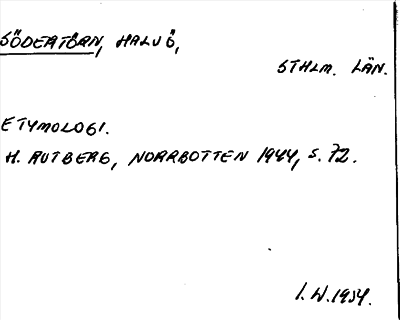 SÖDERTÖRN, HALVÖ,
STHLM. LÄN.
ETYMOLOGI.
H. RUTBERG, NORRBOTTEN 1944, S. 72.
I. W. 1954.